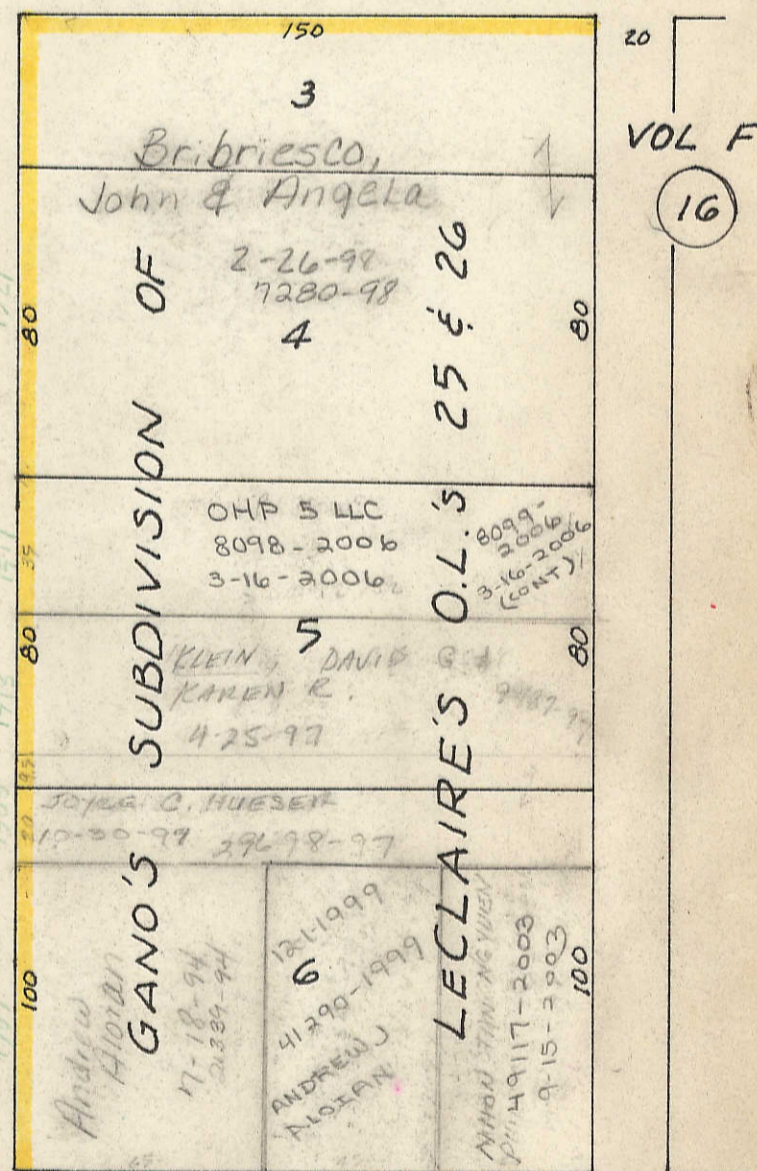 150
20
3
VOL F
16
Bribriesco,
John & Angela
2-26-98
7280-98
4
80
80
GANO'S SUBDIVISION OF
LECLAIRE'S O.L.'S 25 & 26
OHP 5 LLC
8098-2006
3-16-2006
8099-
2006
3-16-2006
(CONT)
35
80
80
5
KLEIN, DAVID G &
KAREN R.
4-25-97
JOYCE C. HUESER
10-30-97 29698-97
20
100
100
Andrew
Aloian
7-18-94
21389-94
12-1-1999
6
41290-1999
ANDREW J
ALOIAN
49117-2003
9-15-2003